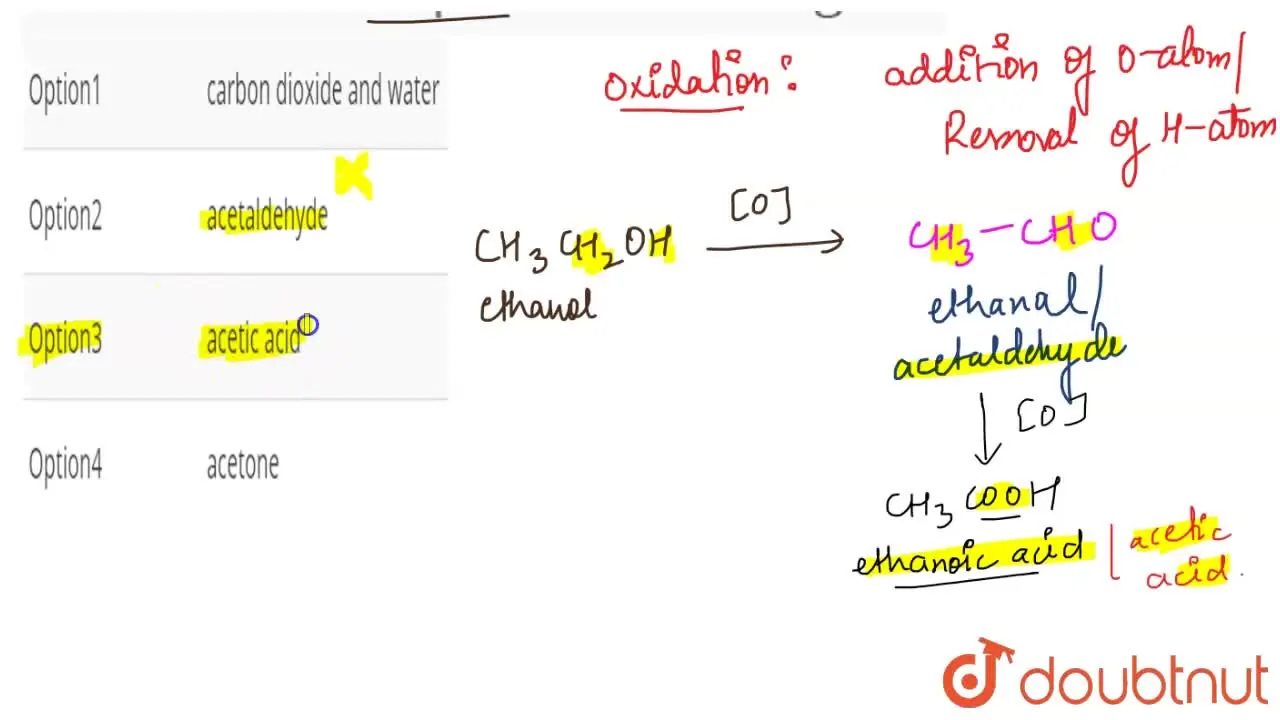 Option1 carbon dioxide and water
Option2 acetaldehyde
Option3 acetic acid
Option4 acetone
Oxidation:
addition of O-atom/
Removal of H-atom
CH3 CH2OH [O] CH3-CHO
ethanol
ethanal/
acetaldehyde
[O]
CH3 COOH
ethanoic acid | acetic
acid.
doubtnut